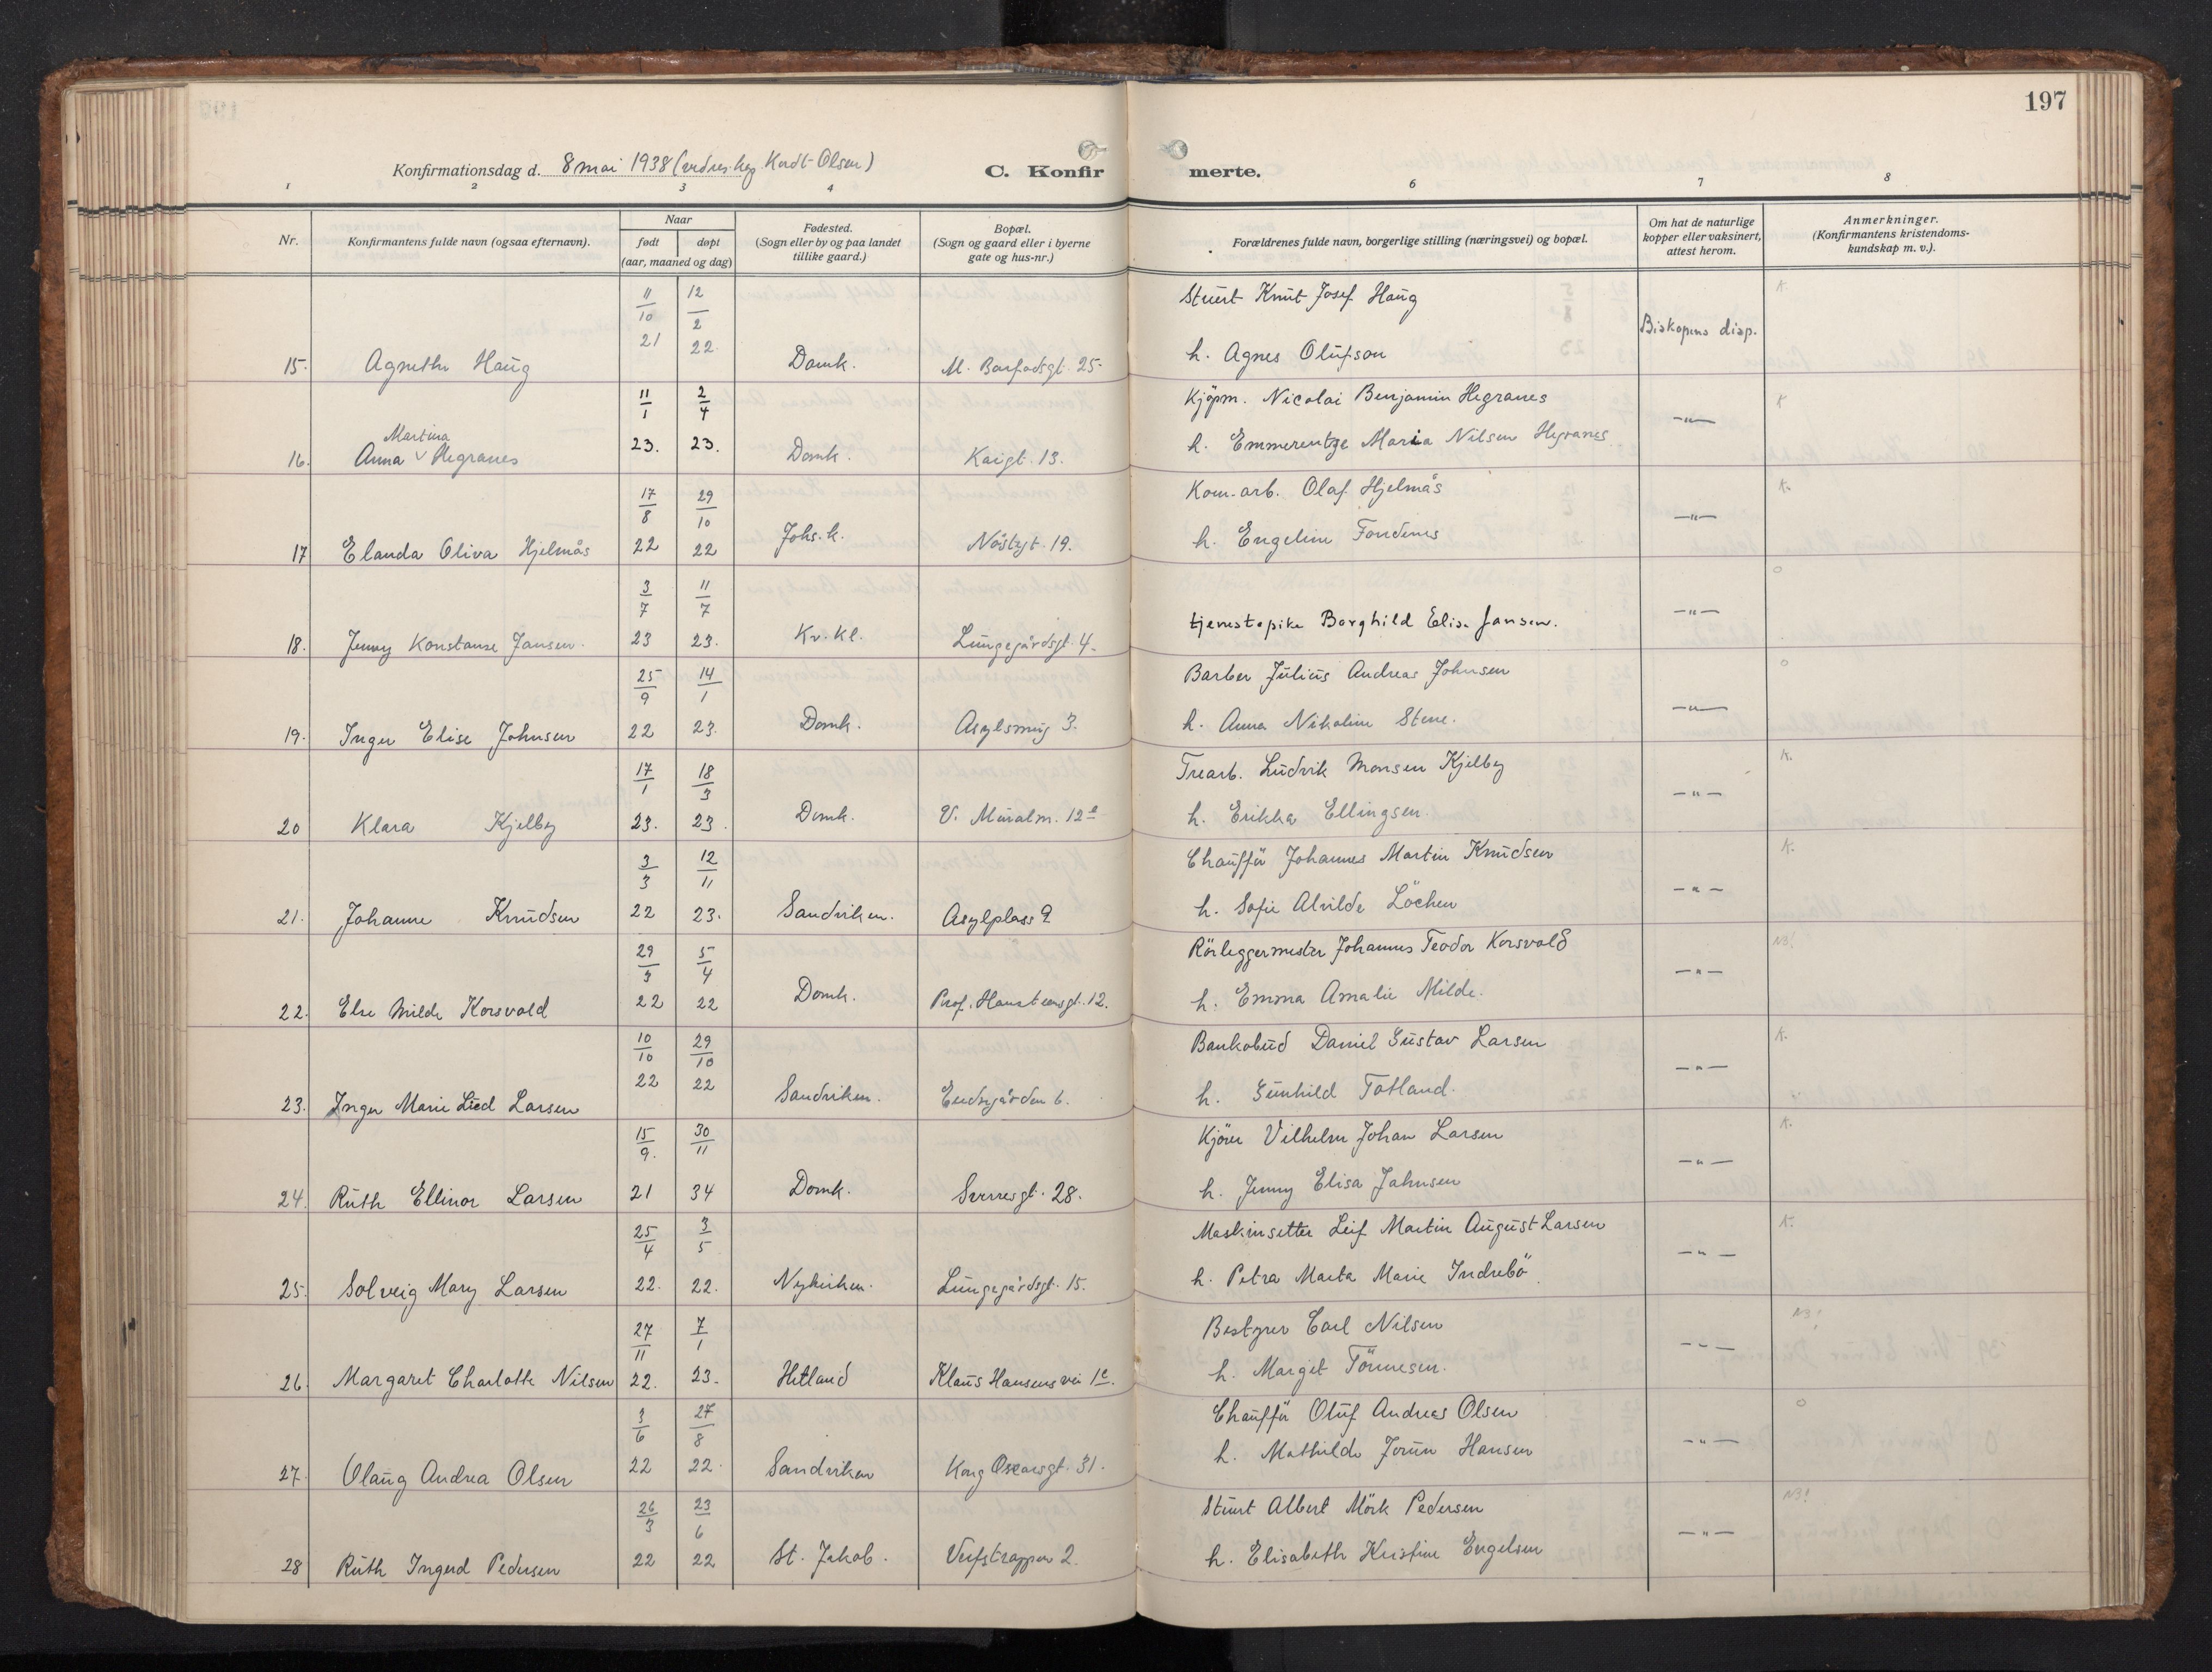 197
Konfirmationsdag d. 8 mai 1938 Kordt-Olsen)
C. Konfirmerte.
1 2 3 4 6 7 8
Nr.
Konfirmantens fulde navn (ogsaa efternavn).
Naar
født døpt
(aar, maaned og dag)
Fødested.
(Sogn eller by og paa landet
tillike gaard.)
Bopæl.
(Sogn og gaard eller i byerne
gate og hus-nr.)
Forældrenes fulde navn, borgerlige stilling (næringsvei) og bopæl.
Om hat de naturlige
kopper eller vaksinert,
attest herom.
Anmerkninger.
(Konfirmantens kristendoms-
kundskap m. v.).
11/10 21 12/2 22 Stuert Knut Josef Haug K.
Biskopens disp.
15. Agnethe Haug Domk. 25 h. Agnes Olufson
11/1 23. 2/4 23. Kjøpm. Nicolai Benjamin Hegranes K
Martina
16. Anna Hegranes Domk. Kaigt. 13. h. Emmerentze Maria Nilsen Hegranes —"—
17/8 22 29/10 22 Kom. arb. Olaf Hjelmås K.
17 Elanda Oliva Hjelmås Johs. k. Nöstegt. 19. h. Engeline —"—
3/7 23 11/7 23. o
18. Jenny Konstanse Jansen. Kr. Kl. Lungegårdsgt. 4. tjenestepike Borghild Elise Jansen. —"—
25/9 22 14/1 23. Barber Julius Andreas Johnsen o
19. Inger Elise Johnsen Domk. Asylsmug 3. h. Anna Nikoline Stene. —"—
17/1 23. 18/3 23. Trearb. Ludvik Monsen Kjelby K.
20 Klara Kjelby Domk. V. Muralm. 12 h. Erikka Ellingsen. —"—
3/3 22 12/11 23. Chaufför Johannes Martin Knudsen K.
21. Johanne Knudsen Sandviken. Asylplass 9 h. Sofie Alvilde Löchen —"—
29/3 22 5/4 22 Rörleggermester Johannes Teodor Korsvold NB!
22. Else Milde Korsvold Domk. Prof. Hansteensgt. 12. h. Emma Amalie Milde. —"—
10/10 22 29/10 22 Bankobud Daniel Gustav Larsen K.
23. Inger Marie Lied Larsen Sandviken. 6. h. Gunhild Totland. —"—
15/9. 21 30/11 34 Kjörer Vilhelm Johan Larsen K.
24. Ruth Ellinor Larsen Domk. Sverresgt. 28. h. Jenny Elisa Jahnsen —"—
25/4 22. 3/5 22. Maskinsetter Leif Martin August Larsen K.
25. Solveig Mary Larsen Nykirken. Lungegårdsgt. 15. h. Petra Marta Marie Indrebö. —"—
27/11 22. 7/1 23. Bestyrer Carl Nilsen NB!
26. Margaret Charlotte Nilsen Hetland Klaus Hansens vei 1 h. Margit Tönnesen. —"—
3/6 22 27/8 22. Chaufför Oluf Andreas Olsen o
27. Olaug Andrea Olsen Sandviken Kong Oscarsgt. 31. h. Mathilde Jorun Hansen —"—
26/3 22 23/6 22 Stuert Albert Mörk Pedersen NB!
28 Ruth Ingerd Pedersen St. Jakob. Verftstrappen 2. h. Elisabeth Kristine Engelsen —"—